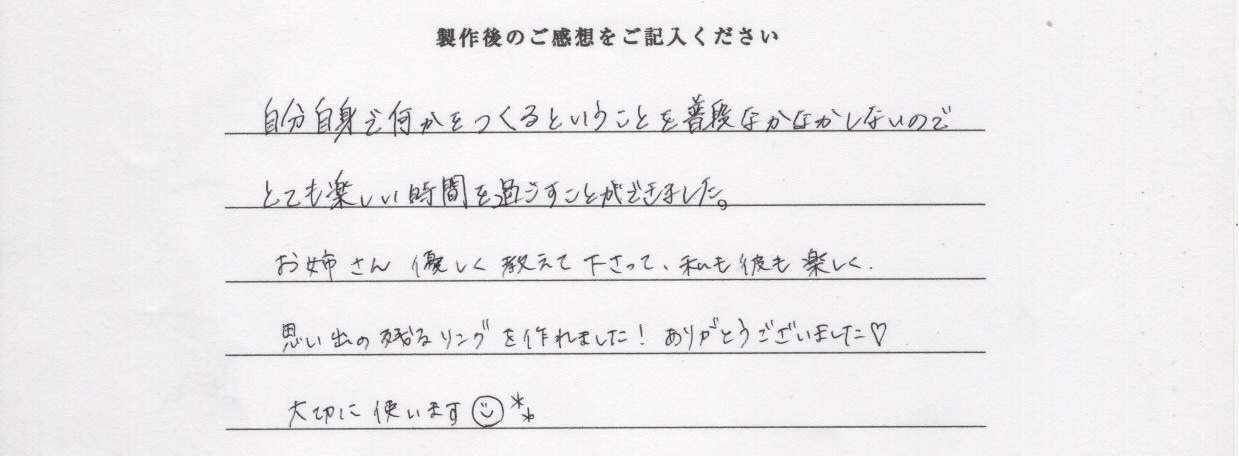 製作後のご感想をご記入ください
自分自身で何かをつくるということを普段なかなかしないので
とても楽しい時間を過ごすことができました。
お姉さん 優しく 教えて 下さって、私も彼も 楽しく、
思い出の残るリングを作れました！ ありがとうございました♡
大切に使います☺**